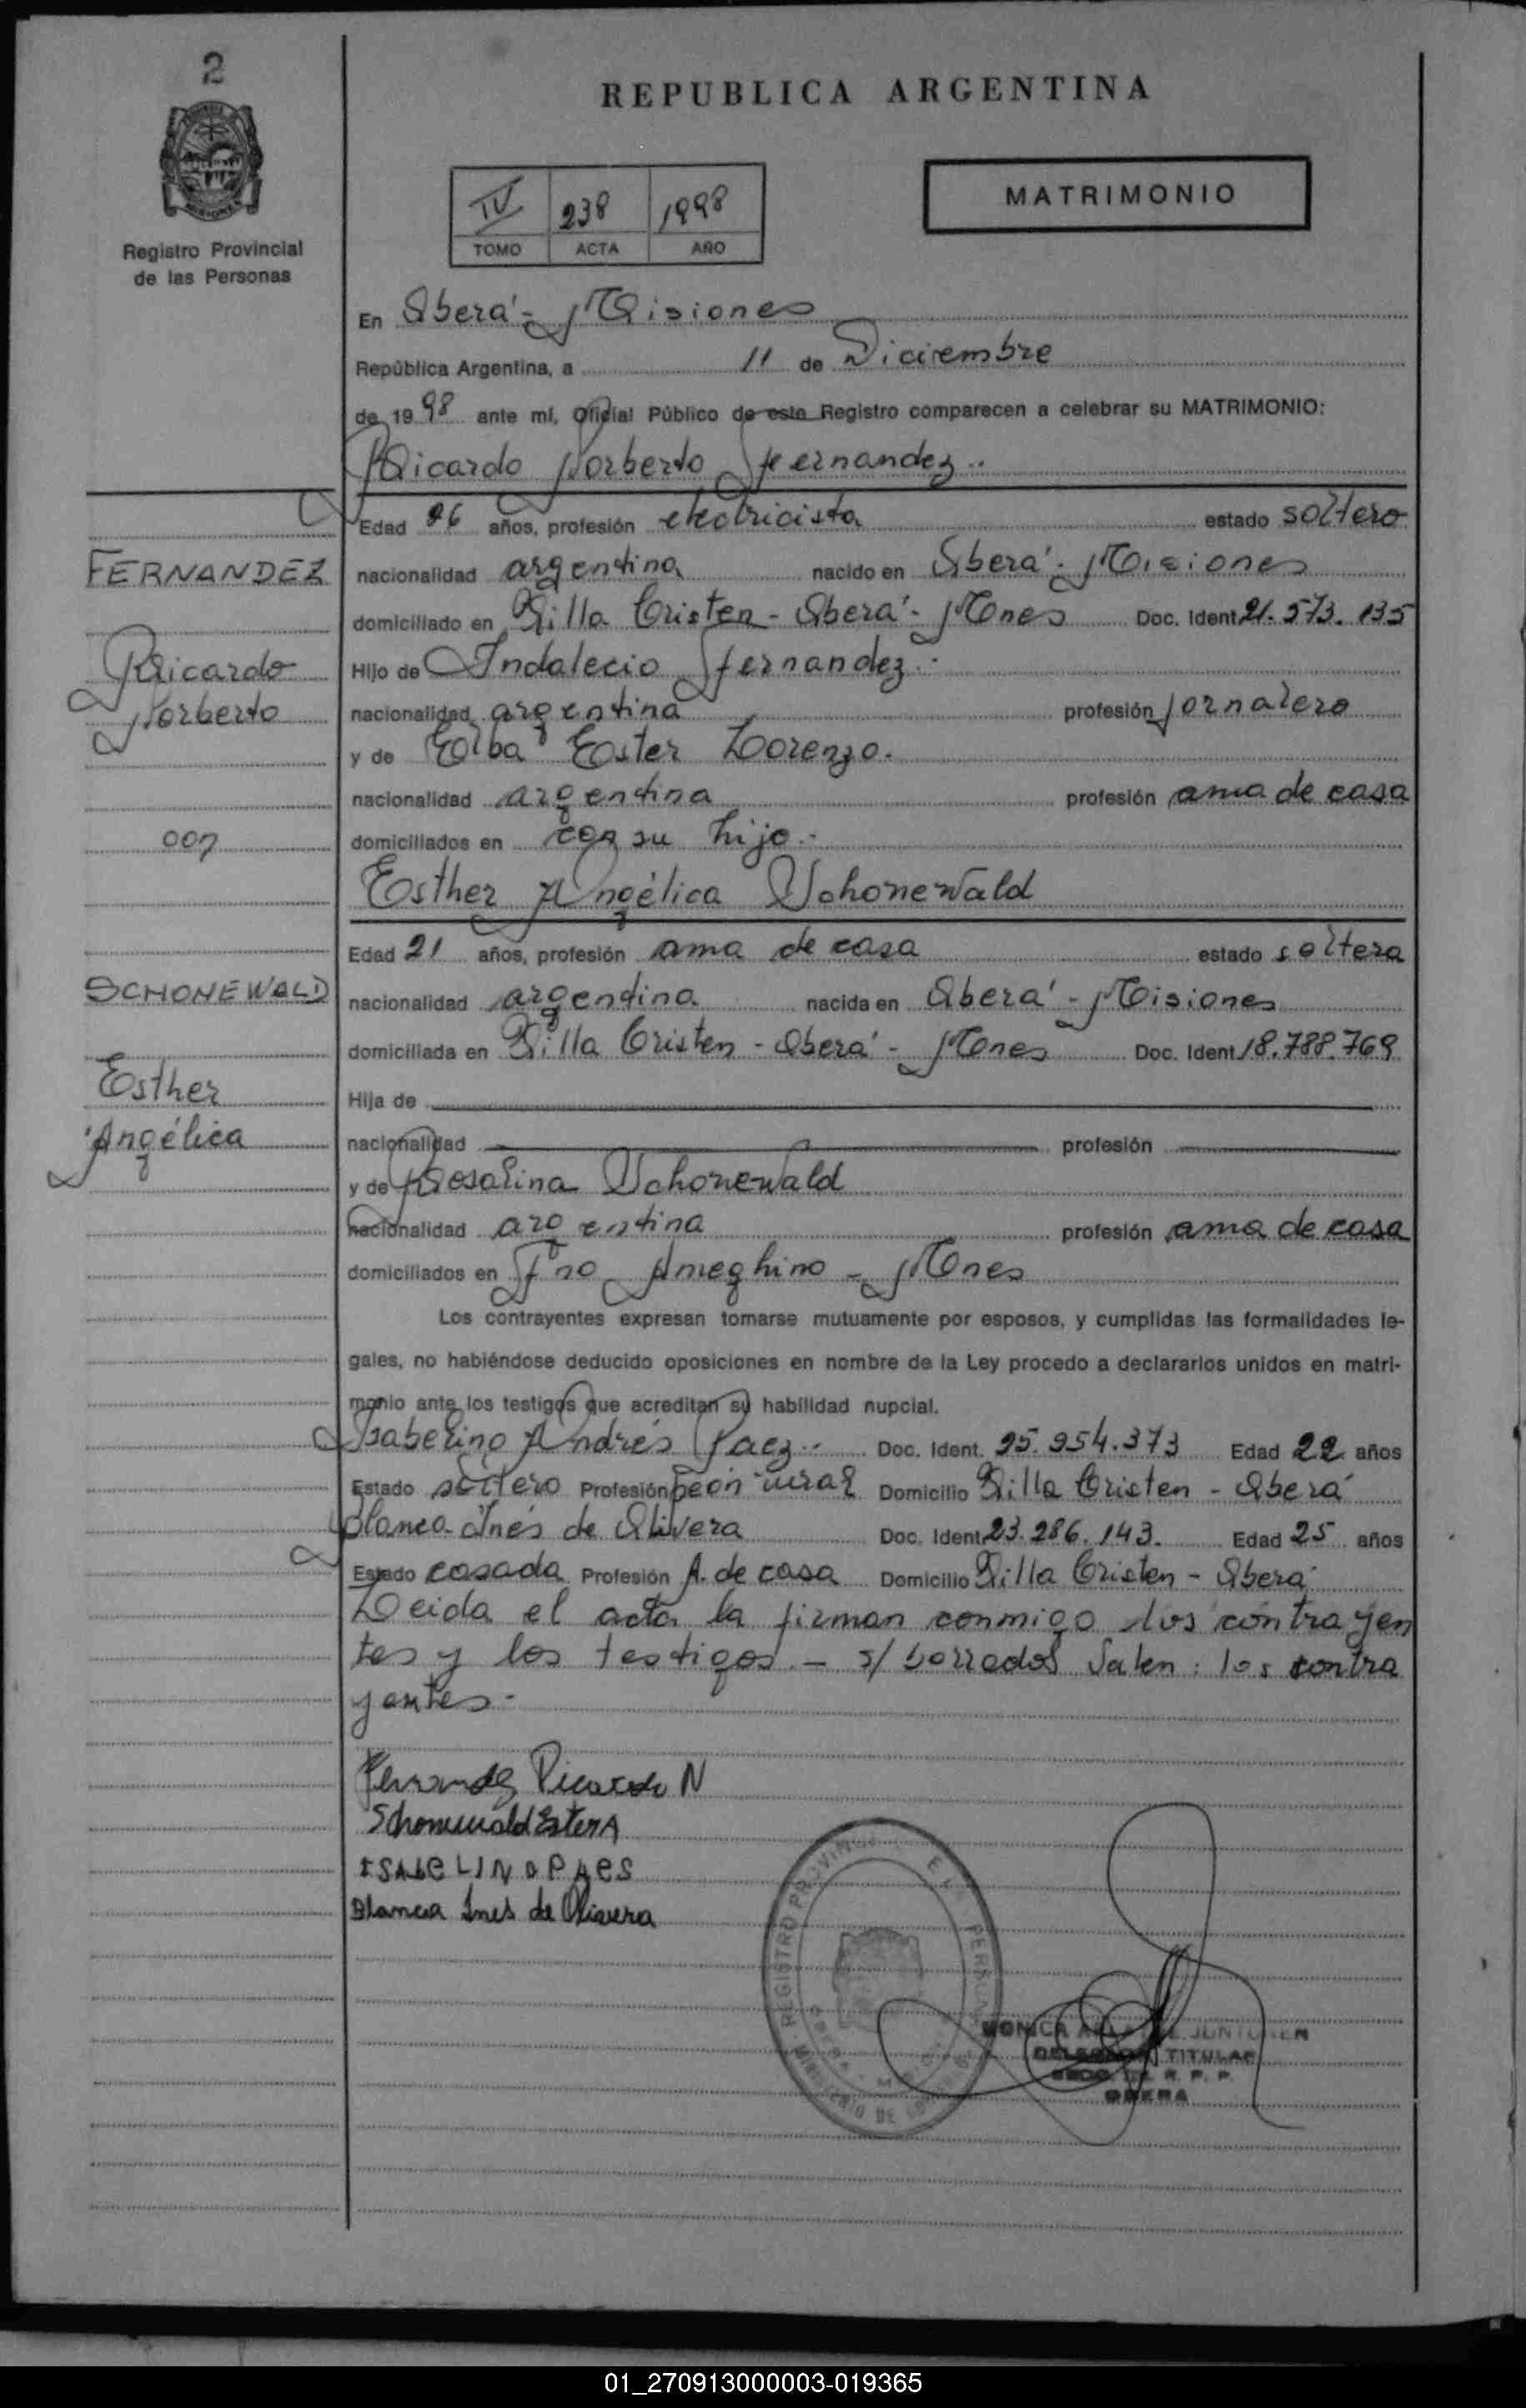 2
REPUBLICA ARGENTINA
IV 238 1998
TOMO ACTA AÑO
MATRIMONIO
Registro Provincial
de las Personas
En Oberá - Misiones
República Argentina, a 11 de Diciembre
de 1998 ante mí, Oficial Público de este Registro comparecen a celebrar su MATRIMONIO:
Ricardo Norberto Fernandez..
Edad años, profesión electricista estado soltero
FERNANDEZ
nacionalidad argentina nacido en Oberá - Misiones
domiciliado en Villa Cristen - Oberá - Mnes Doc. Ident 21.573.135
Ricardo
Hijo de Indalecio Fernandez.-
Norberto
nacionalidad argentina profesión jornalero
y de Elba Ester Lorenzo.
nacionalidad argentina profesión ama de casa
007
domiciliados en con su hijo.-
Esther Angélica Schonewald
Edad 21 años, profesión ama de casa estado soltera
SCHONEWALD
nacionalidad argentina nacida en Oberá - Misiones
domiciliada en Villa Cristen - Oberá - Mnes Doc. Ident 18.788.769
Esther
Hija de
Angélica
nacionalidad profesión
y de Rosalina Schonewald
nacionalidad argentina profesión ama de casa
domiciliados en Fno Ameghino - Mnes
Los contrayentes expresan tomarse mutuamente por esposos, y cumplidas las formalidades le-
gales, no habiéndose deducido oposiciones en nombre de la Ley procedo a declararlos unidos en matri-
monio ante los testigos que acreditan su habilidad nupcial.
Isabelino Andrés Paez.. Doc. Ident. 25.954.373 Edad 22 años
Estado soltero Profesión peón rural Domicilio Villa Cristen - Oberá
Blanca Inés de Olivera Doc. Ident 23.286.143. Edad 25 años
Estado casada Profesión A. de casa Domicilio Villa Cristen - Oberá
Leida el acta la firman conmigo los contrayen
tes y los testigos. - s/ borrados Valen: los contra
yentes.-
Fernandez Ricardo N
Schonewald Ester A
ISABELINO PAES
Blanca Ines de Olivera
REGISTRO PROVINCIAL DE LAS PERSONAS
MINISTERIO DE
MONICA JUNTUNEN
DELEGADA TITULAR
R. P. P.
OBERA
01_270913000003-019365